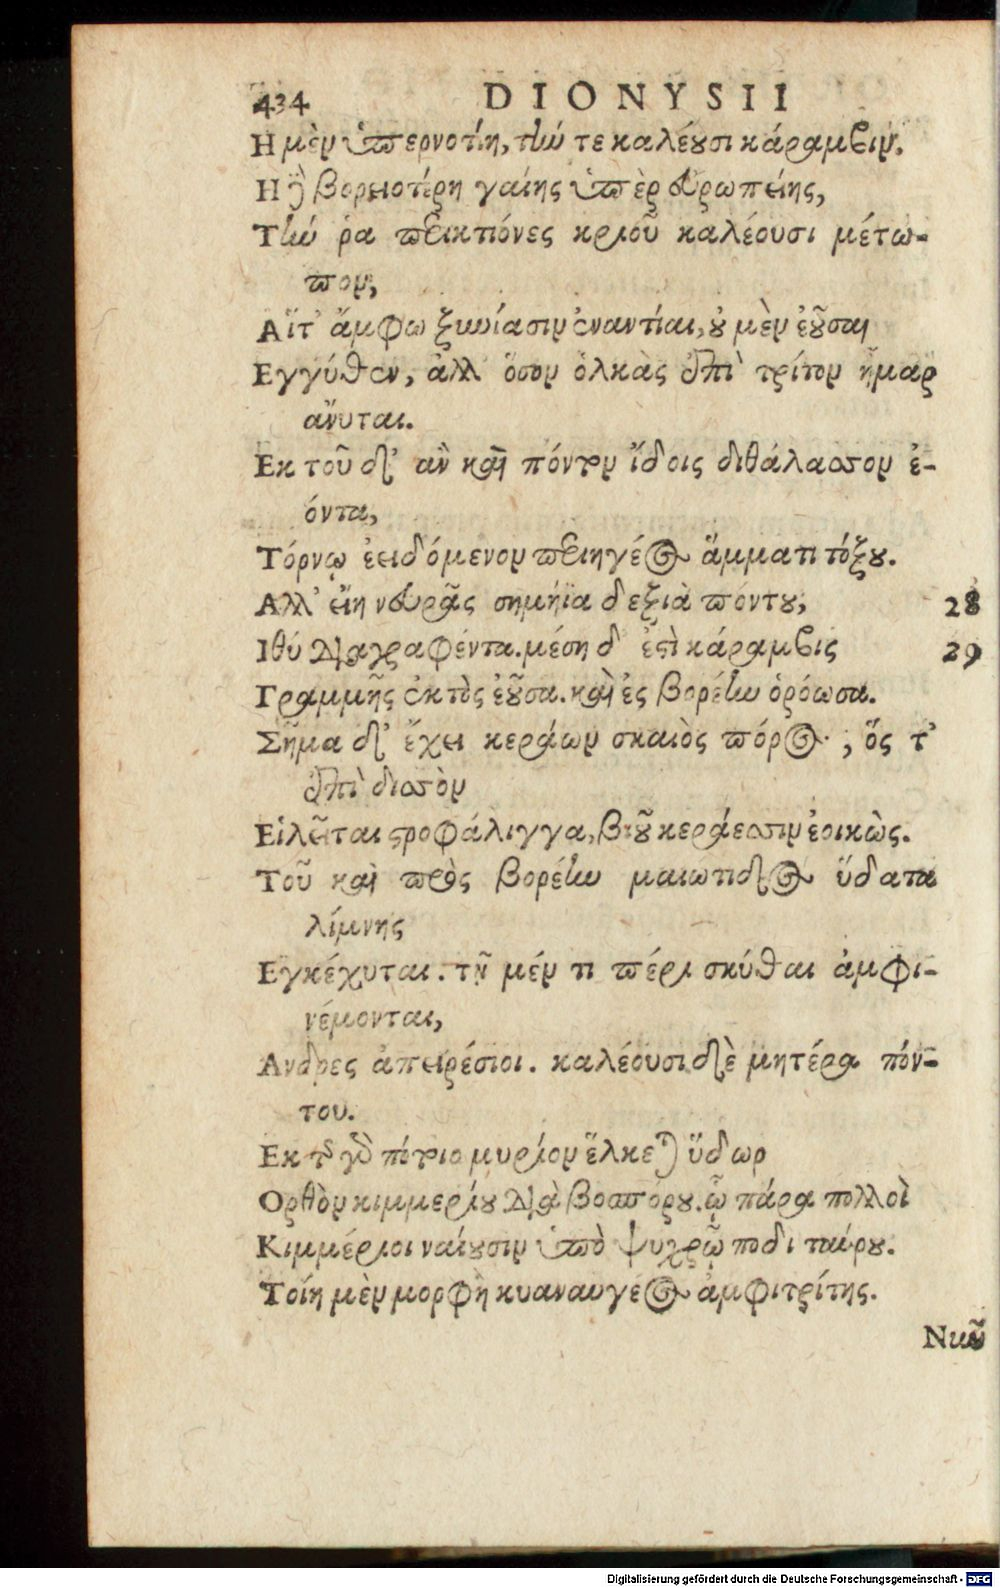 434 DIONYSII
Η μὲν ὑπερνοτίη, τήν τε καλέουσι κάραμβιν.
Η δὲ βορειοτέρη γαίης ὑπὲρ εὐρωπείης,
Τήν ῥα περικτιόνες κριοῦ καλέουσι μέτω-
πον,
Αἵτ' ἄμφω ξυνίασιν ἐναντίαι, οὐ μὲν ἐοῦσαι
Εγγύθεν, ἀλλ' ὅσον ὁλκὰς ἐπὶ τρίτον ἦμαρ
ἀνύται.
Εκ τοῦ δ' ἂν καὶ πόντον ἴδοις διθάλασσον ἐ-
όντα,
Τόρνῳ ἐειδόμενον περιηγέος ἅμματι τόξου.
Αλλ' εἴη νευρᾶς σημήϊα δεξιὰ πόντου, 28
Ιθύ διαγραφέντα. μέση δ' ἐστὶ κάραμβις 29
Γραμμῆς ἐκτὸς ἐοῦσα. καὶ ἐς βορέην ὁρόωσα.
Σῆμα δ' ἔχει κεράων σκαιὸς πόρος, ὅς τ'
ἐπὶ δισσὸν
Εἱλεῖται στροφάλιγγα, βιοῦ κεράεσσιν ἐοικὼς.
Τοῦ καὶ πρὸς βορέην μαιώτιδος ὕδατα
λίμνης
Εγκέχυται. τὴν μέν τι πέρι σκύθαι ἀμφι-
νέμονται,
Ανδρες ἀπειρέσιοι. καλέουσι δὲ μητέρα πόν-
του.
Εκ τῆς γὰρ πόντοιο μυρίον ἕλκεται ὕδωρ
Ορθὸν κιμμερίου διὰ βοσπόρου. ᾧ πάρα πολλοὶ
Κιμμέριοι ναίουσιν ὑπὸ ψυχρῷ ποδὶ ταύρου.
Τοίη μὲν μορφὴ κυαναυγέος ἀμφιτρίτης.
Νῦν
Digitalisierung gefördert durch die Deutsche Forschungsgemeinschaft - DFG